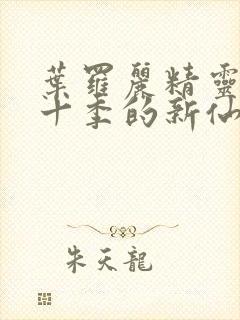 葉羅麗精靈
十季的新仙
朱天龍